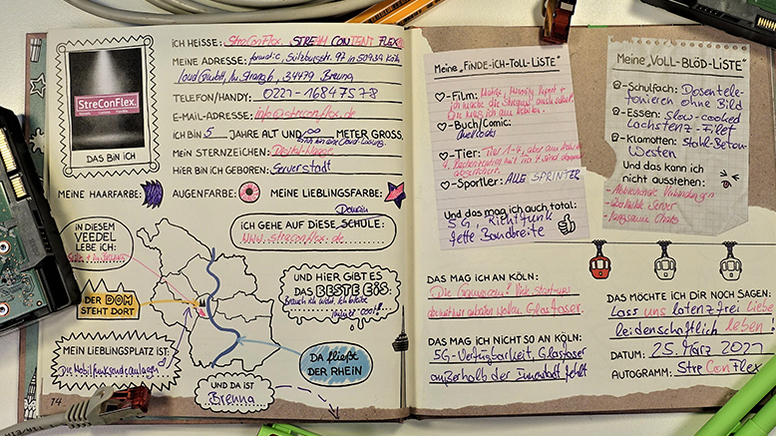 StreConFlex.
DAS BIN ICH
ICH HEISSE: StreConFlex. STREAM CONTENT FLEX
MEINE ADRESSE: Sülzburgstr. 17 in 50939 Köln
34479 Breuna
TELEFON/HANDY: 0221-16847578
E-MAIL-ADRESSE: info@streconflex.de
ICH BIN 5 JAHRE ALT UND ∞ METER GROSS.
MEIN STERNZEICHEN:
HIER BIN ICH GEBOREN: Serverstadt
MEINE HAARFARBE: AUGENFARBE: MEINE LIEBLINGSFARBE:
IN DIESEM
VEEDEL
LEBE ICH:
Domain
ICH GEHE AUF DIESE SCHULE:
www.streconflex.de
DER DOM
STEHT DORT
UND HIER GIBT ES
DAS BESTE EIS:
immer cool!
MEIN LIEBLINGSPLATZ IST:
Die Mobilfunksendeanlagen
DA fließt
DER RHEIN
UND DA IST
Breuna
74
Meine „FINDE-ICH-TOLL-LISTE"
-Film:
-Buch/Comic:
-Tier:
-Sportler: ALLE SPRINTER
Und das mag ich auch total:
5G, Richtfunk
fette Bandbreite
Meine „VOLL-BLÖD-LISTE"
-Schulfach: Dosentele-
fonieren ohne Bild
-Essen: slow-cooked
Lachstenz-Filet
-Klamotten: Stahl-Beton
Westen
Und das kann ich
nicht ausstehen:
- Abbrechende Verbindungen
- Langsame Chats
DAS MAG ICH AN KÖLN:
Glasfaser.
DAS MAG ICH NICHT SO AN KÖLN:
5G-Verfügbarkeit, Glasfaser
außerhalb der Innenstadt fehlt
DAS MÖCHTE ICH DIR NOCH SAGEN:
Lass uns latenzfrei Liebe
leidenschaftlich leben!
DATUM: 25. März 2021
AUTOGRAMM: StreConFlex